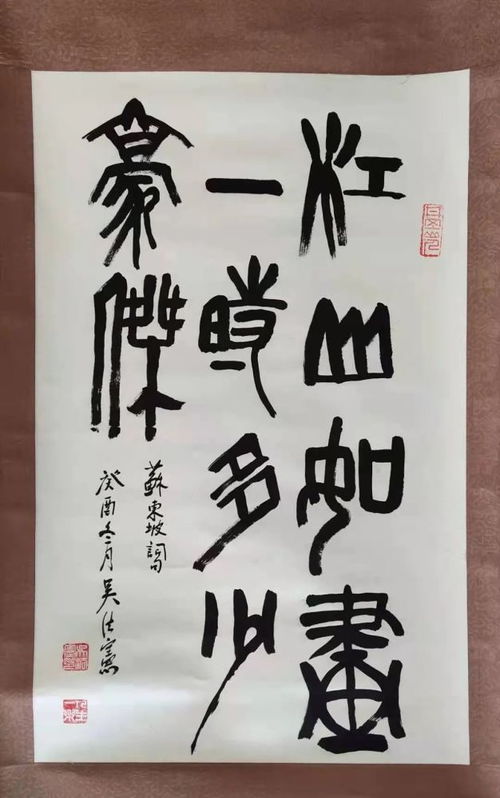 江山如畫
一時多少
豪傑
蘇東坡詞
癸酉冬月吴仕憲